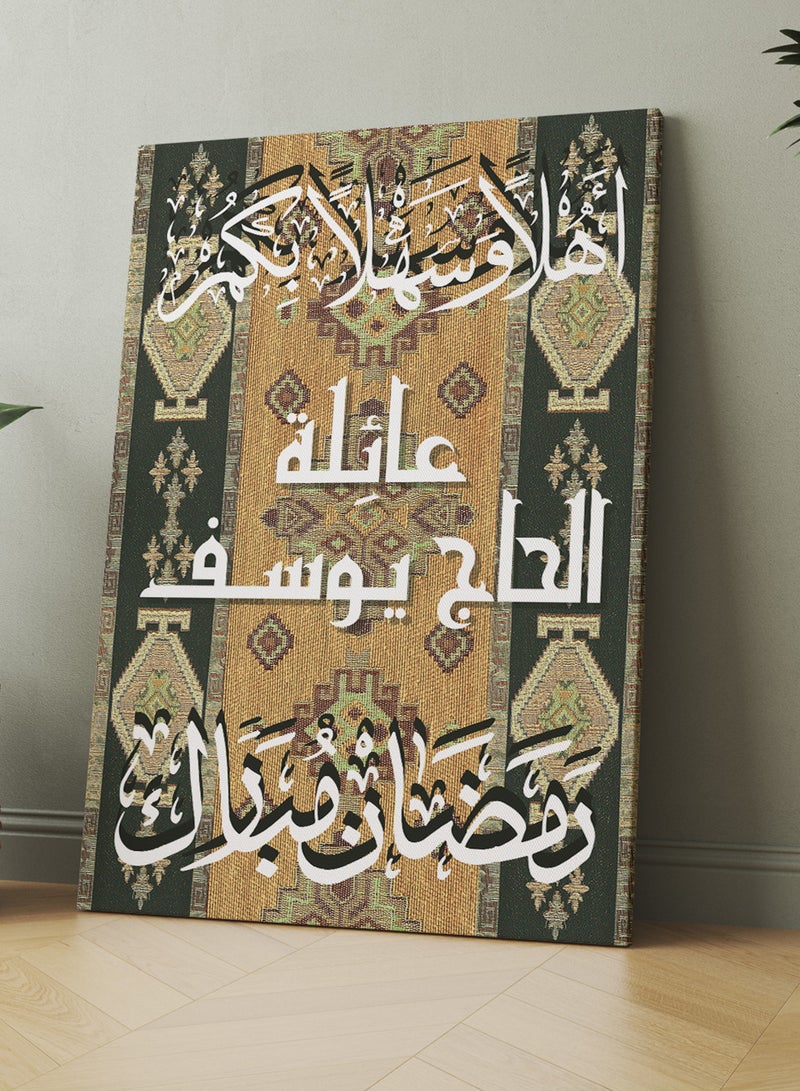 أَهْلاً وَسَهْلاً بِكُمْ
عائِلة
الحاج يوسف
رَمَضَانْ مُبَارَك